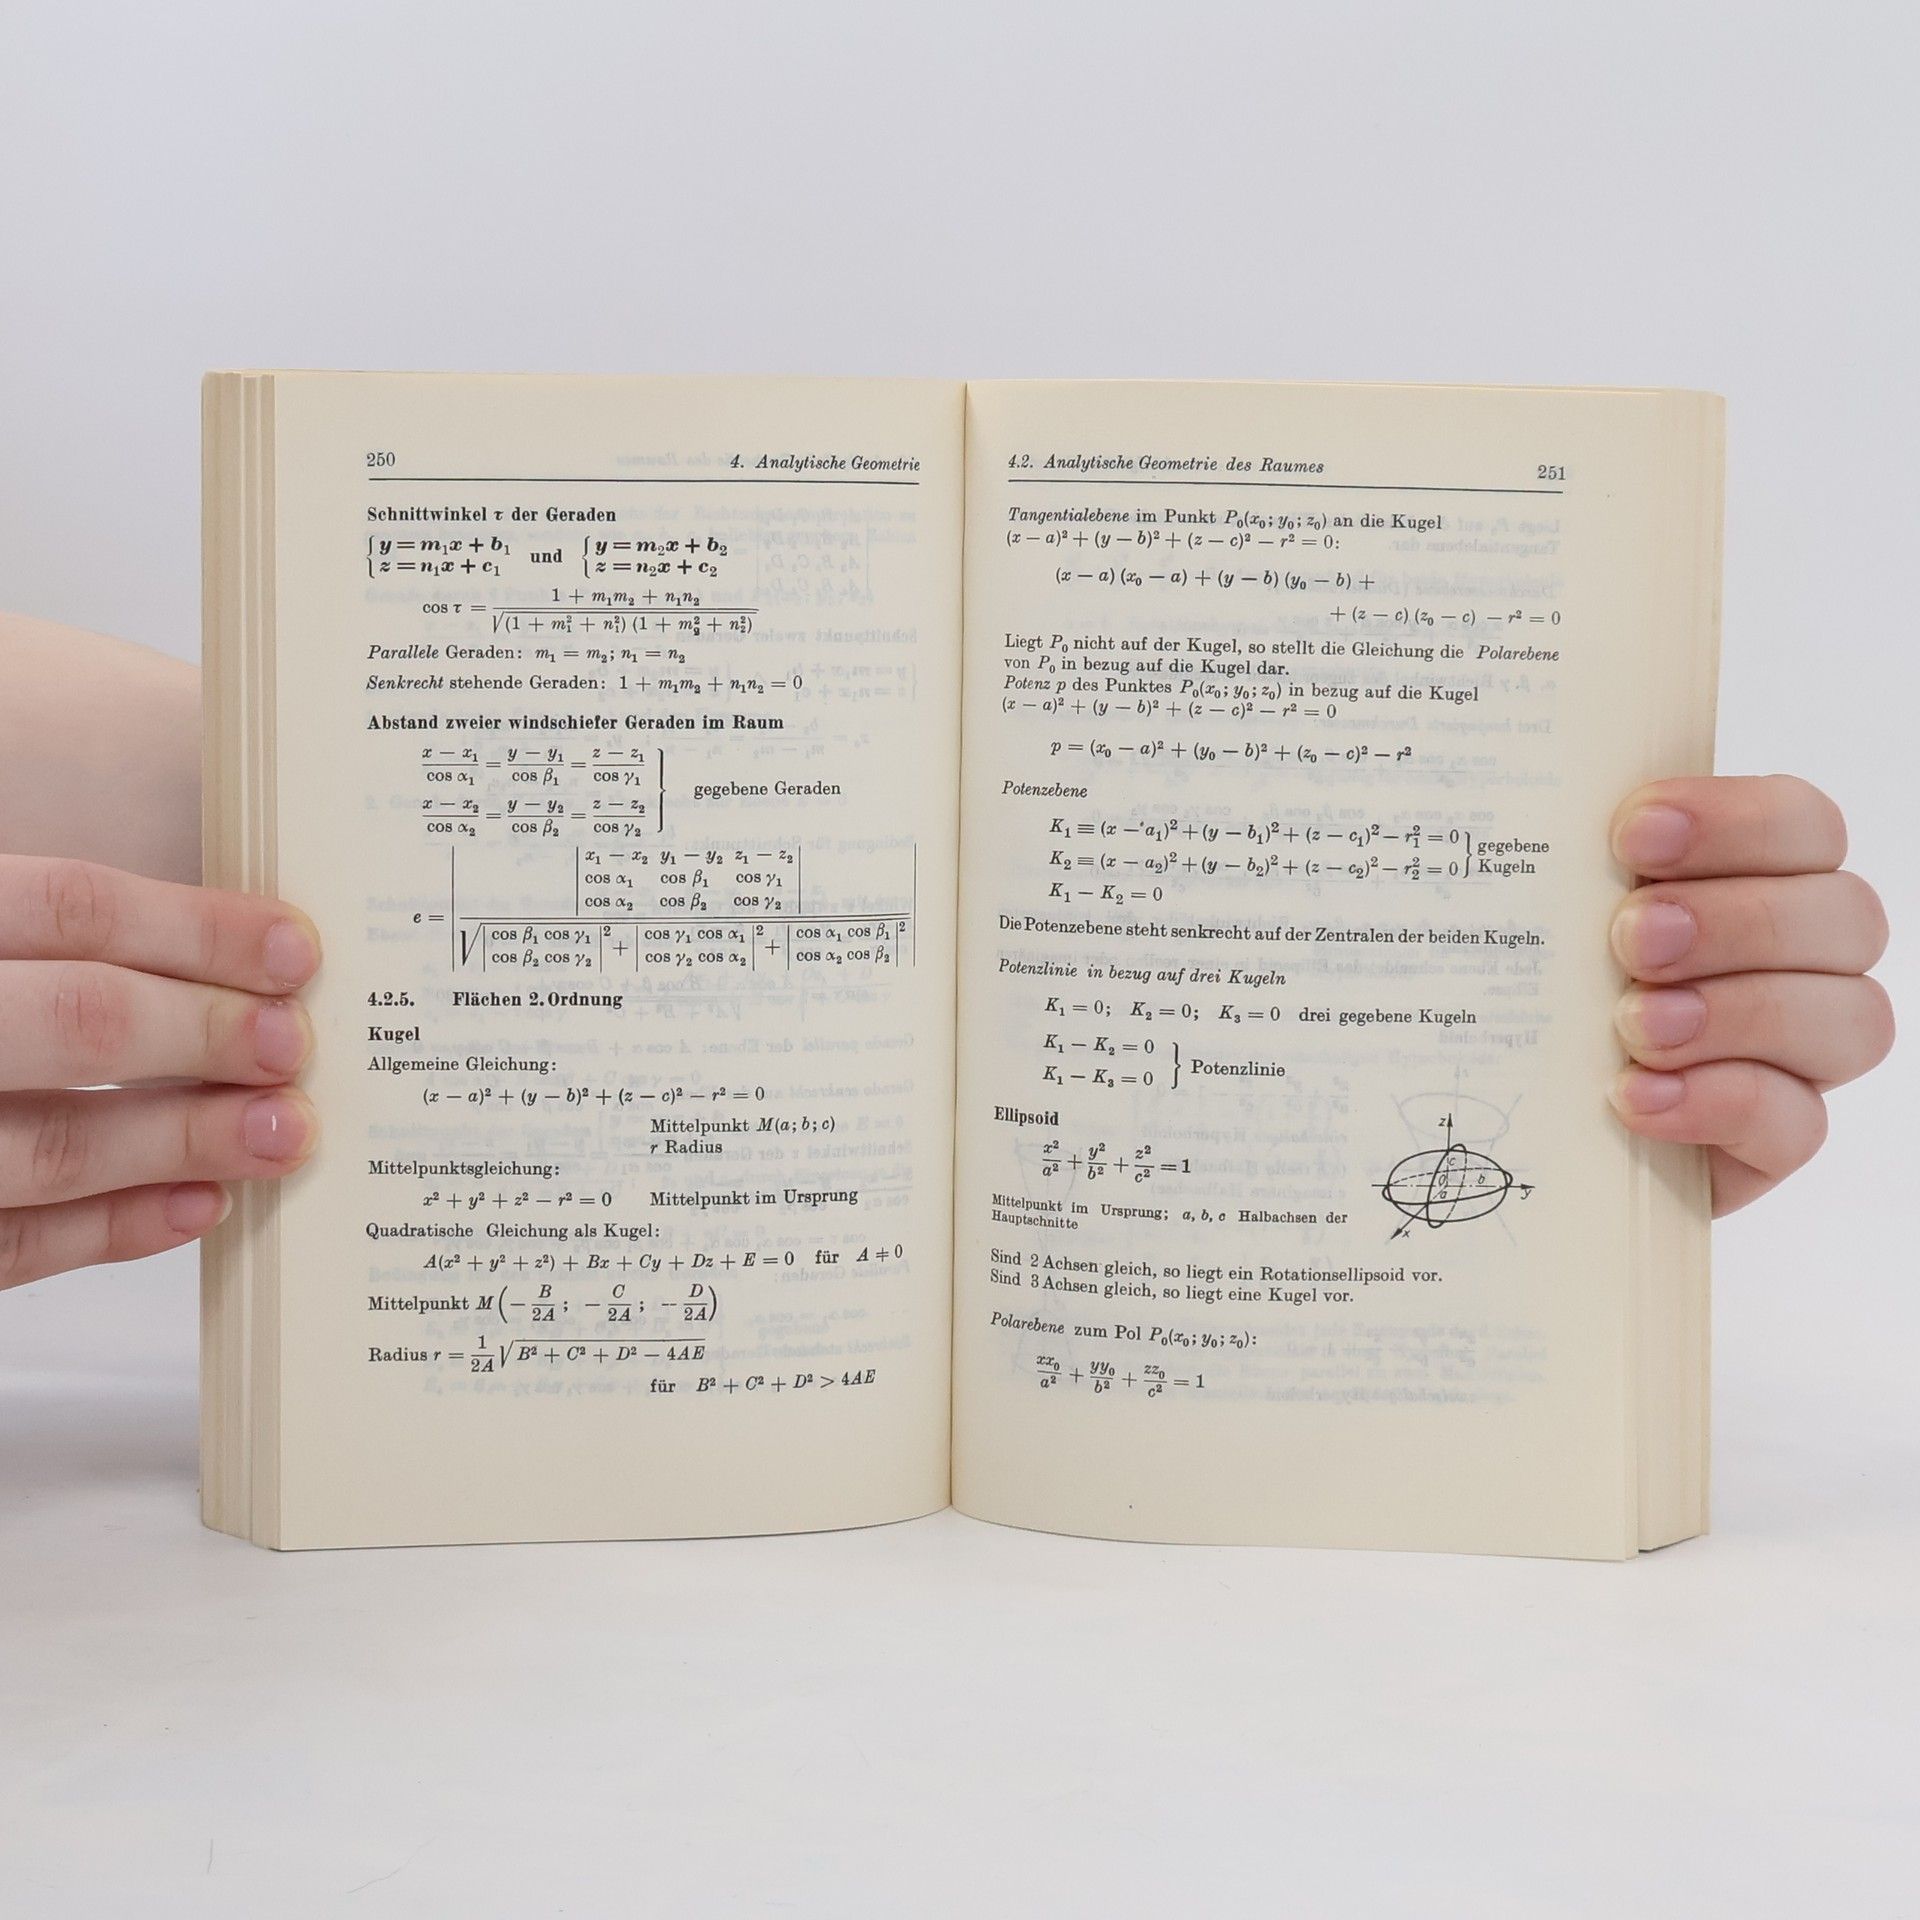 250 4. Analytische Geometrie
Schnittwinkel τ der Geraden
{ y = m₁x + b₁ und { y = m₂x + b₂
{ z = n₁x + c₁ { z = n₂x + c₂
cos τ = (1 + m₁m₂ + n₁n₂) / √((1 + m₁² + n₁²) (1 + m₂² + n₂²))
Parallele Geraden: m₁ = m₂; n₁ = n₂
Senkrecht stehende Geraden: 1 + m₁m₂ + n₁n₂ = 0
Abstand zweier windschiefer Geraden im Raum
(x − x₁)/(cos α₁) = (y − y₁)/(cos β₁) = (z − z₁)/(cos γ₁)
(x − x₂)/(cos α₂) = (y − y₂)/(cos β₂) = (z − z₂)/(cos γ₂) } gegebene Geraden
| x₁ − x₂ y₁ − y₂ z₁ − z₂ |
| cos α₁ cos β₁ cos γ₁ |
| cos α₂ cos β₂ cos γ₂ |
e =
√ | cos β₁ cos γ₁ |² + | cos γ₁ cos α₁ |² + | cos α₁ cos β₁ |²
| cos β₂ cos γ₂ | | cos γ₂ cos α₂ | | cos α₂ cos β₂ |
4.2.5. Flächen 2. Ordnung
Kugel
Allgemeine Gleichung:
(x − a)² + (y − b)² + (z − c)² − r² = 0
Mittelpunkt M(a; b; c)
r Radius
Mittelpunktsgleichung:
x² + y² + z² − r² = 0 Mittelpunkt im Ursprung
Quadratische Gleichung als Kugel:
A(x² + y² + z²) + Bx + Cy + Dz + E = 0 für A ≠ 0
Mittelpunkt M (− B/2A; − C/2A; − D/2A)
Radius r = 1/2A √(B² + C² + D² − 4AE)
für B² + C² + D² > 4AE
4.2. Analytische Geometrie des Raumes 251
Tangentialebene im Punkt P₀(x₀; y₀; z₀) an die Kugel
(x − a)² + (y − b)² + (z − c)² − r² = 0:
(x − a) (x₀ − a) + (y − b) (y₀ − b) +
+ (z − c) (z₀ − c) − r² = 0
Liegt P₀ nicht auf der Kugel, so stellt die Gleichung die Polarebene
von P₀ in bezug auf die Kugel dar.
Potenz p des Punktes P₀(x₀; y₀; z₀) in bezug auf die Kugel
(x − a)² + (y − b)² + (z − c)² − r² = 0
p = (x₀ − a)² + (y₀ − b)² + (z₀ − c)² − r²
Potenzebene
K₁ ≡ (x − a₁)² + (y − b₁)² + (z − c₁)² − r₁² = 0 } gegebene
K₂ ≡ (x − a₂)² + (y − b₂)² + (z − c₂)² − r₂² = 0 } Kugeln
K₁ − K₂ = 0
Die Potenzebene steht senkrecht auf der Zentralen der beiden Kugeln.
Potenzlinie in bezug auf drei Kugeln
K₁ = 0; K₂ = 0; K₃ = 0 drei gegebene Kugeln
K₁ − K₂ = 0
K₁ − K₃ = 0 } Potenzlinie
Ellipsoid
x²/a² + y²/b² + z²/c² = 1
Mittelpunkt im Ursprung; a, b, c Halbachsen der
Hauptschnitte
z
c
0 b
a
y
x
Sind 2 Achsen gleich, so liegt ein Rotationsellipsoid vor.
Sind 3 Achsen gleich, so liegt eine Kugel vor.
Polarebene zum Pol P₀(x₀; y₀; z₀):
xx₀/a² + yy₀/b² + zz₀/c² = 1